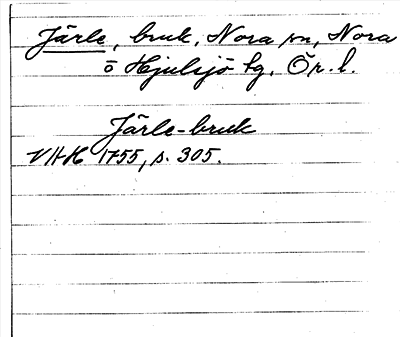 Järle, bruk, Nora sn, Nora
o Hjulsjö tg, Ör. l.
Järle-bruk
VHH 1755, s. 305.